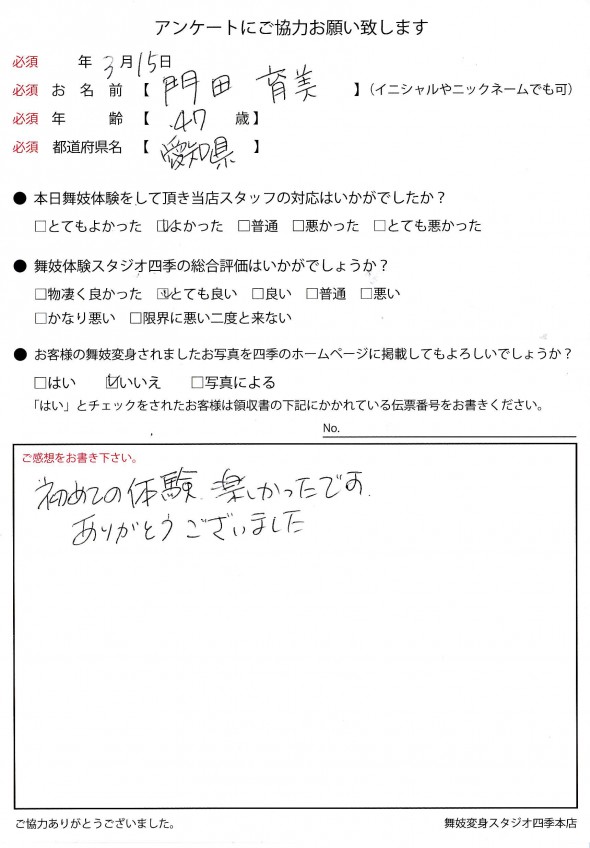 アンケートにご協力お願い致します
必須 年3月15日
必須 お名前【 門田 育美 】(イニシャルやニックネームでも可)
必須 年齢【 47 歳】
必須 都道府県名【 愛知県 】
● 本日舞妓体験をして頂き当店スタッフの対応はいかがでしたか?
□とてもよかった ☑よかった □普通 □悪かった □とても悪かった
● 舞妓体験スタジオ四季の総合評価はいかがでしょうか?
□物凄く良かった ☑とても良い □良い □普通 □悪い
□かなり悪い □限界に悪い二度と来ない
● お客様の舞妓変身されましたお写真を四季のホームページに掲載してもよろしいでしょうか?
□はい ☑いいえ □写真による
「はい」とチェックをされたお客様は領収書の下記にかかれている伝票番号をお書きください。
No.
ご感想をお書き下さい。
初めての体験 楽しかったです
ありがとうございました
ご協力ありがとうございました。 舞妓変身スタジオ四季本店